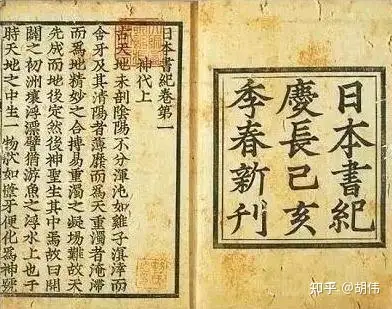 日本書紀
慶長己亥
季春新刊
日本書紀卷第一
神代上
古天地未剖陰陽不分渾沌如雞子溟涬而
含牙及其清陽者薄靡而爲天重濁者淹滯
而爲地精妙之合搏易重濁之凝場難故天
先成而地後定然後神聖生其中焉故曰開
闢之初洲壤浮漂譬猶游魚之浮水上也于
時天地之中生一物狀如葦牙便化爲神號
知乎 @胡伟